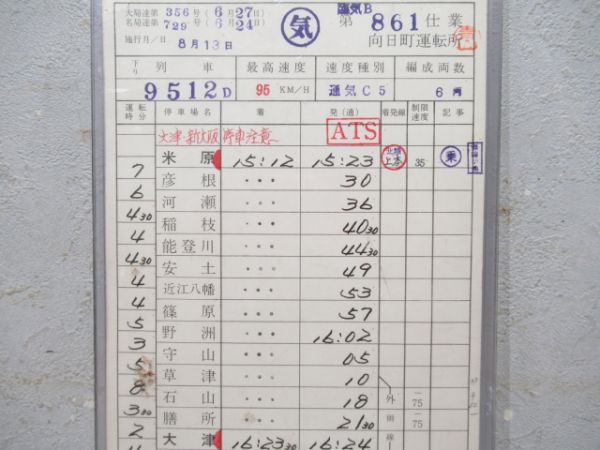 大局達第 356号(6月27日) 臨気B
名局達第 729号(6月24日) 気 第 861 仕業
施行月/日 8月13日 向日町運転所
下り 列車 最高速度 速度種別 編成両数
9512D 95 KM/H 通気C5 6両
運転時分 停車場名 着 発(通) 着発線 制限速度 記事
大津・新大阪停車注意 ATS
米原 15:12 15:23 上本 35 乗
7
彦根 ・・・ 30
6
河瀬 ・・・ 36
4 30
稲枝 ・・・ 40 30
4
能登川 ・・・ 44 30
4 30
安土 ・・・ 49
4
近江八幡 ・・・ 53
4
篠原 ・・・ 57
5
野洲 ・・・ 16:02
3
守山 ・・・ 05
5
草津 ・・・ 10
8
石山 ・・・ 18 外 75
3 30
膳所 ・・・ 21 30 側 75
2
大津 16:23 30 16:24 線